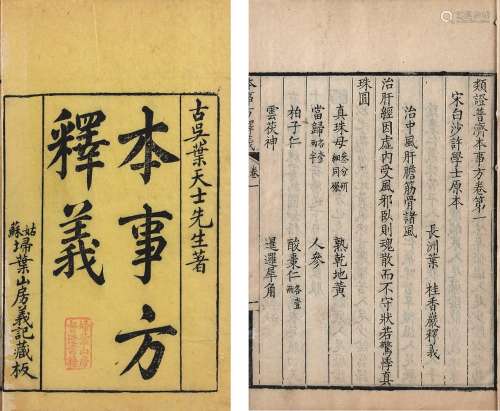 古吳葉天士先生著
本事方
釋義
姑蘇埽葉山房義記藏板
類證普濟本事方卷第一
宋白沙許學士原本
長洲葉 桂香巖釋義
治中風肝膽筋骨諸風
治肝經因虛內受風邪臥則魂散而不守狀若驚悸真
珠圓
真珠母叁分研細同碾 熟乾地黃
當歸各壹兩 人參
柏子仁 酸棗仁各壹兩
雲茯神 暹邏犀角
本事方釋義 卷一